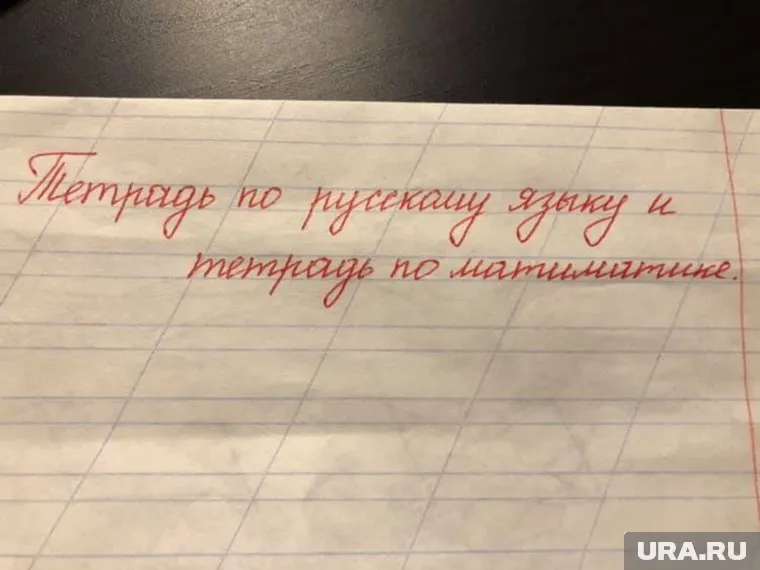 Тетрадь по русскому языку и
тетрадь по матиматике.
URA.RU